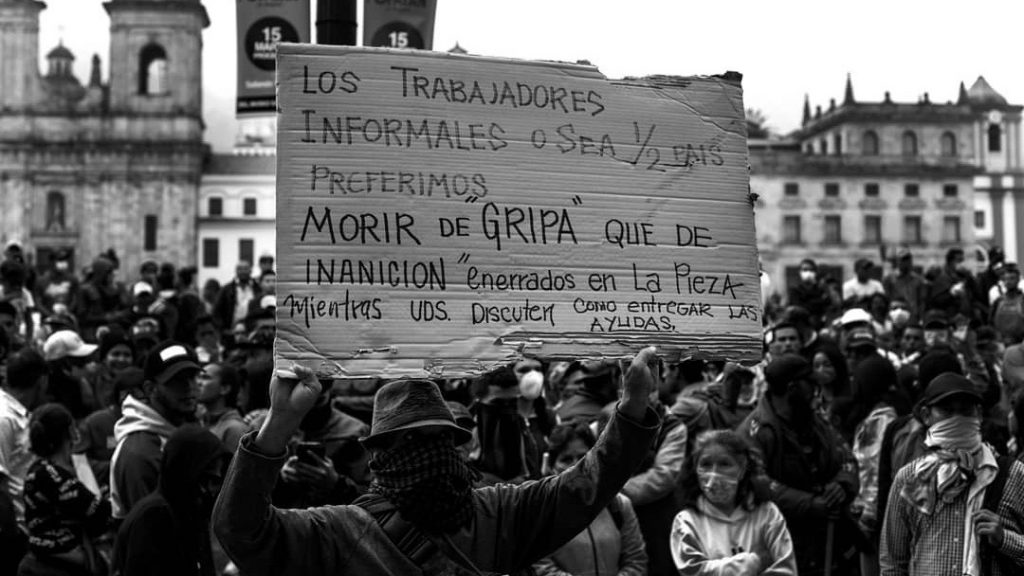 15
15
LOS TRABAJADORES
INFORMALES O SEA 1/2 PAIS
PREFERIMOS
MORIR DE "GRIPA" QUE DE
INANICION "enerrados en La Pieza
Mientras UDS. Discuten como entregar LAS
AYUDAS.